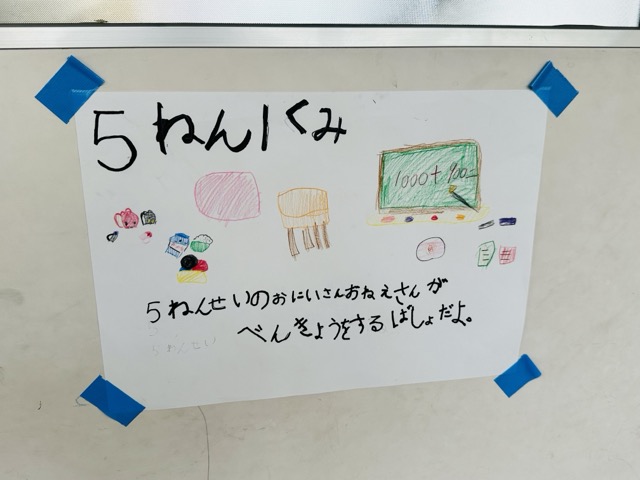 5ねん1くみ
1000+900=
5ねんせいのおにいさんおねえさんが
べんきょうをするばしょだよ。